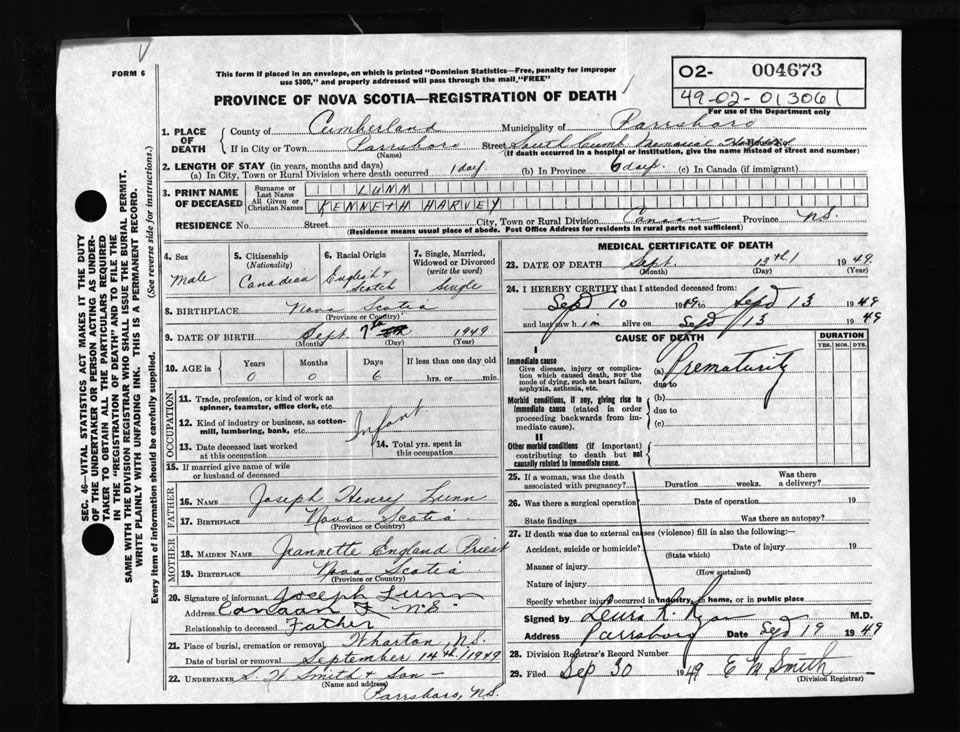 FORM 6
This form if placed in an envelope, on which is printed "Dominion Statistics—Free, penalty for improper
use $300," and properly addressed will pass through the mail, "FREE"
PROVINCE OF NOVA SCOTIA—REGISTRATION OF DEATH
O2- 004673
49-02-013061
For use of the Department only
SEC. 46—VITAL STATISTICS ACT MAKES IT THE DUTY
OF THE UNDERTAKER OR PERSON ACTING AS UNDER-
TAKER TO OBTAIN ALL THE PARTICULARS REQUIRED
IN THE "REGISTRATION OF DEATH" AND TO FILE THE
SAME WITH THE DIVISION REGISTRAR WHO SHALL ISSUE THE BURIAL PERMIT.
WRITE PLAINLY WITH UNFADING INK. THIS IS A PERMANENT RECORD.
Every item of information should be carefully supplied. (See reverse side for instructions.)
1. PLACE OF DEATH County of Cumberland Municipality of Parrsboro
If in City or Town Parrsboro Street South Cumb Memorial Hospital
(Name) (If death occurred in a hospital or institution, give the name instead of street and number)
2. LENGTH OF STAY (in years, months and days)
(a) In City, Town or Rural Division where death occurred 1 day (b) In Province 6 days (c) In Canada (if immigrant)
3. PRINT NAME OF DECEASED Surname or Last Name LUNN
All Given or Christian Names KENNETH HARVEY
RESIDENCE No. Street City, Town or Rural Division Canaan Province N.S.
(Residence means usual place of abode. Post Office Address for residents in rural parts not sufficient)
4. Sex Male
5. Citizenship (Nationality) Canadian
6. Racial Origin English & Scotch
7. Single, Married, Widowed or Divorced (write the word) Single
8. BIRTHPLACE Nova Scotia
(Province or Country)
9. DATE OF BIRTH Sept 7th 1949
(Month) (Day) (Year)
10. AGE in Years 0 Months 0 Days 6 If less than one day old hrs. or min.
OCCUPATION
11. Trade, profession, or kind of work as
spinner, teamster, office clerk, etc.
12. Kind of industry or business, as cotton-
mill, lumbering, bank, etc. Infant
13. Date deceased last worked at this occupation
14. Total yrs. spent in this occupation
15. If married give name of wife
or husband of deceased
FATHER
16. NAME Joseph Henry Lunn
17. BIRTHPLACE Nova Scotia
(Province or Country)
MOTHER
18. MAIDEN NAME Jeannette England Priest
19. BIRTHPLACE Nova Scotia
(Province or Country)
20. Signature of informant Joseph Lunn
Address Canaan N.S.
Relationship to deceased Father
21. Place of burial, cremation or removal Wharton, N.S.
Date of burial or removal September 14th/1949
22. UNDERTAKER S. W Smith & Son —
(Name and address)
Parrsboro, N.S.
MEDICAL CERTIFICATE OF DEATH
23. DATE OF DEATH Sept. 13th 1949
(Month) (Day) (Year)
24. I HEREBY CERTIFY that I attended deceased from:
Sept 10 1949 to Sept 13 1949
and last saw him alive on Sept 13 1949
CAUSE OF DEATH
DURATION
YRS. MOS. DYS.
I
Immediate cause
Give disease, injury or complica-
tion which caused death, NOT the
mode of dying, such as heart failure,
asphyxia, asthenia, etc.
(a) Prematurity
due to
Morbid conditions, if any, giving rise to
immediate cause (stated in order
proceeding backwards from im-
mediate cause).
(b)
due to
(c)
II
Other morbid conditions (if important)
contributing to death but not
causally related to immediate cause.
25. If a woman, was the death
associated with pregnancy? Duration weeks. Was there a delivery?
26. Was there a surgical operation Date of operation 19
State findings Was there an autopsy?
27. If death was due to external causes (violence) fill in also the following:—
Accident, suicide or homicide? Date of injury 19
(State which)
Manner of injury
(How sustained)
Nature of injury
Specify whether injury occurred in industry, in home, or in public place
Signed by R. Ryan M.D.
Address Parrsboro Date Sept 19 1949
28. Division Registrar's Record Number
29. Filed Sep 30 1949 E M Smith
(Division Registrar)